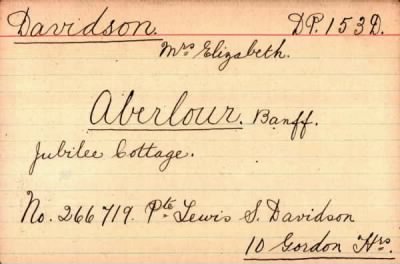 Davidson. DP. 153D.
Mrs Elizabeth.
Aberlour. Banff.
Jubilee Cottage.
No. 266719. Pte. Lewis S. Davidson
10 Gordon Hrs.